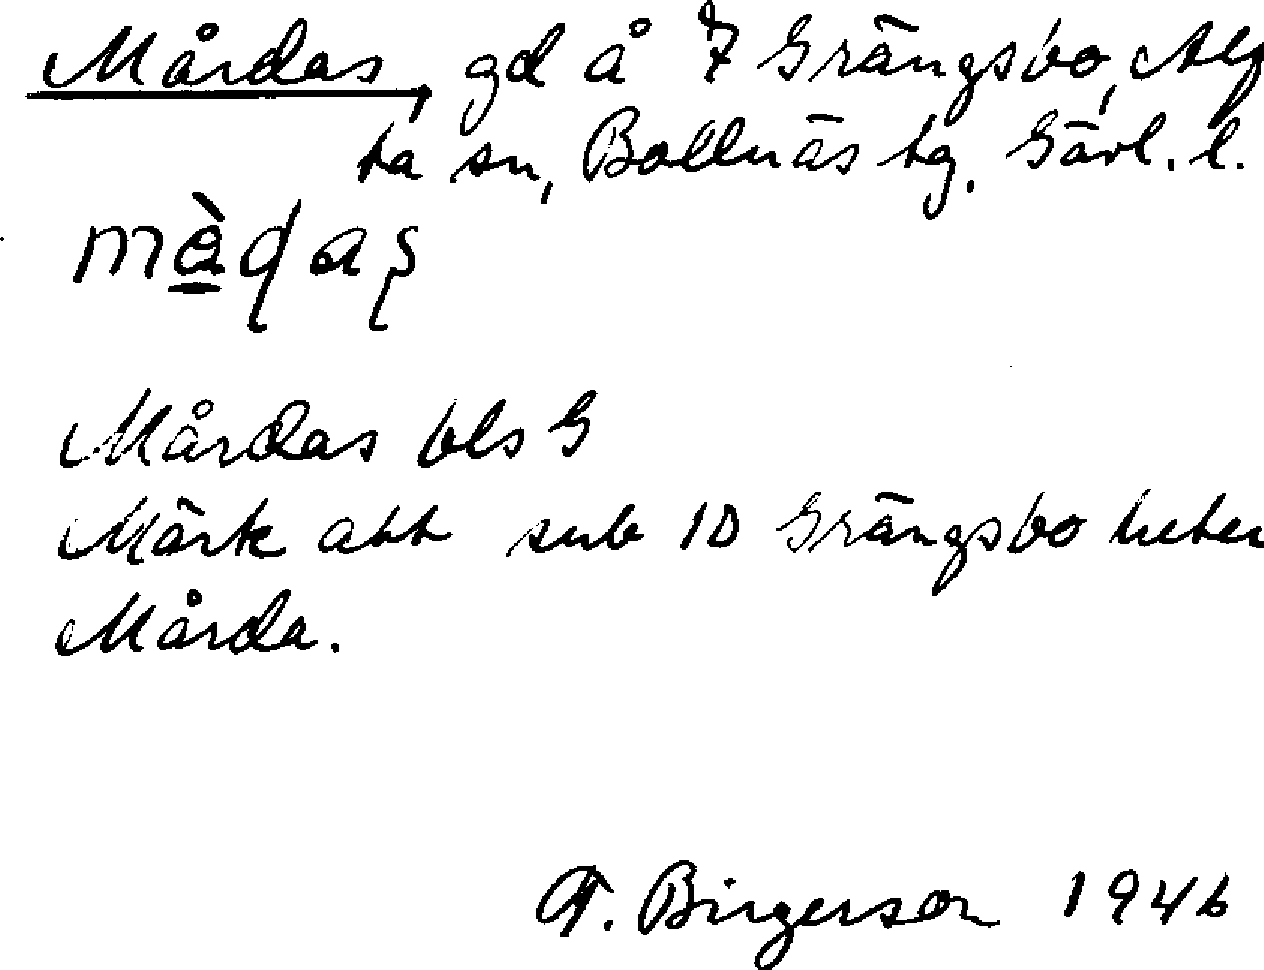 Mårdas, gd å 7 Grängsbo, Alf
ta sn, Bollnäs tg. Gävl. l.
Mårdas bls G
Märk att sub 10 Grängsbo heter
Mårda.
F. Birgerson 1946